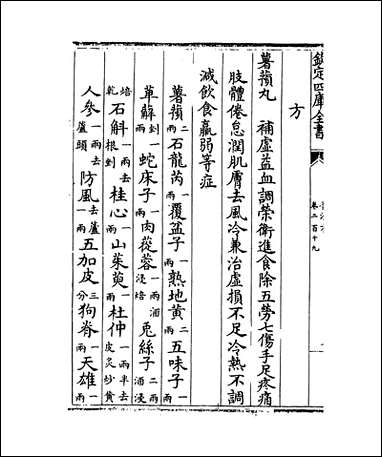 欽定四庫全書
卷二百十九
方
薯蕷丸　補虛益血調榮衛進食除五勞七傷手足疼痛
肢體倦怠潤肌膚去風冷兼治虛損不足冷熱不調
減飲食羸弱等症
薯蕷二兩石龍芮一兩覆盆子一兩熟地黃二兩五味子一兩
萆薢一兩剉蛇床子一兩肉蓯蓉一兩酒浸焙兎絲子二兩酒浸
焙乾石斛一兩去根剉桂心一兩山茱萸一兩杜仲一兩半去皮炙炒黃
人參一兩去蘆頭防風去蘆一兩五加皮三分狗脊一兩天雄一兩